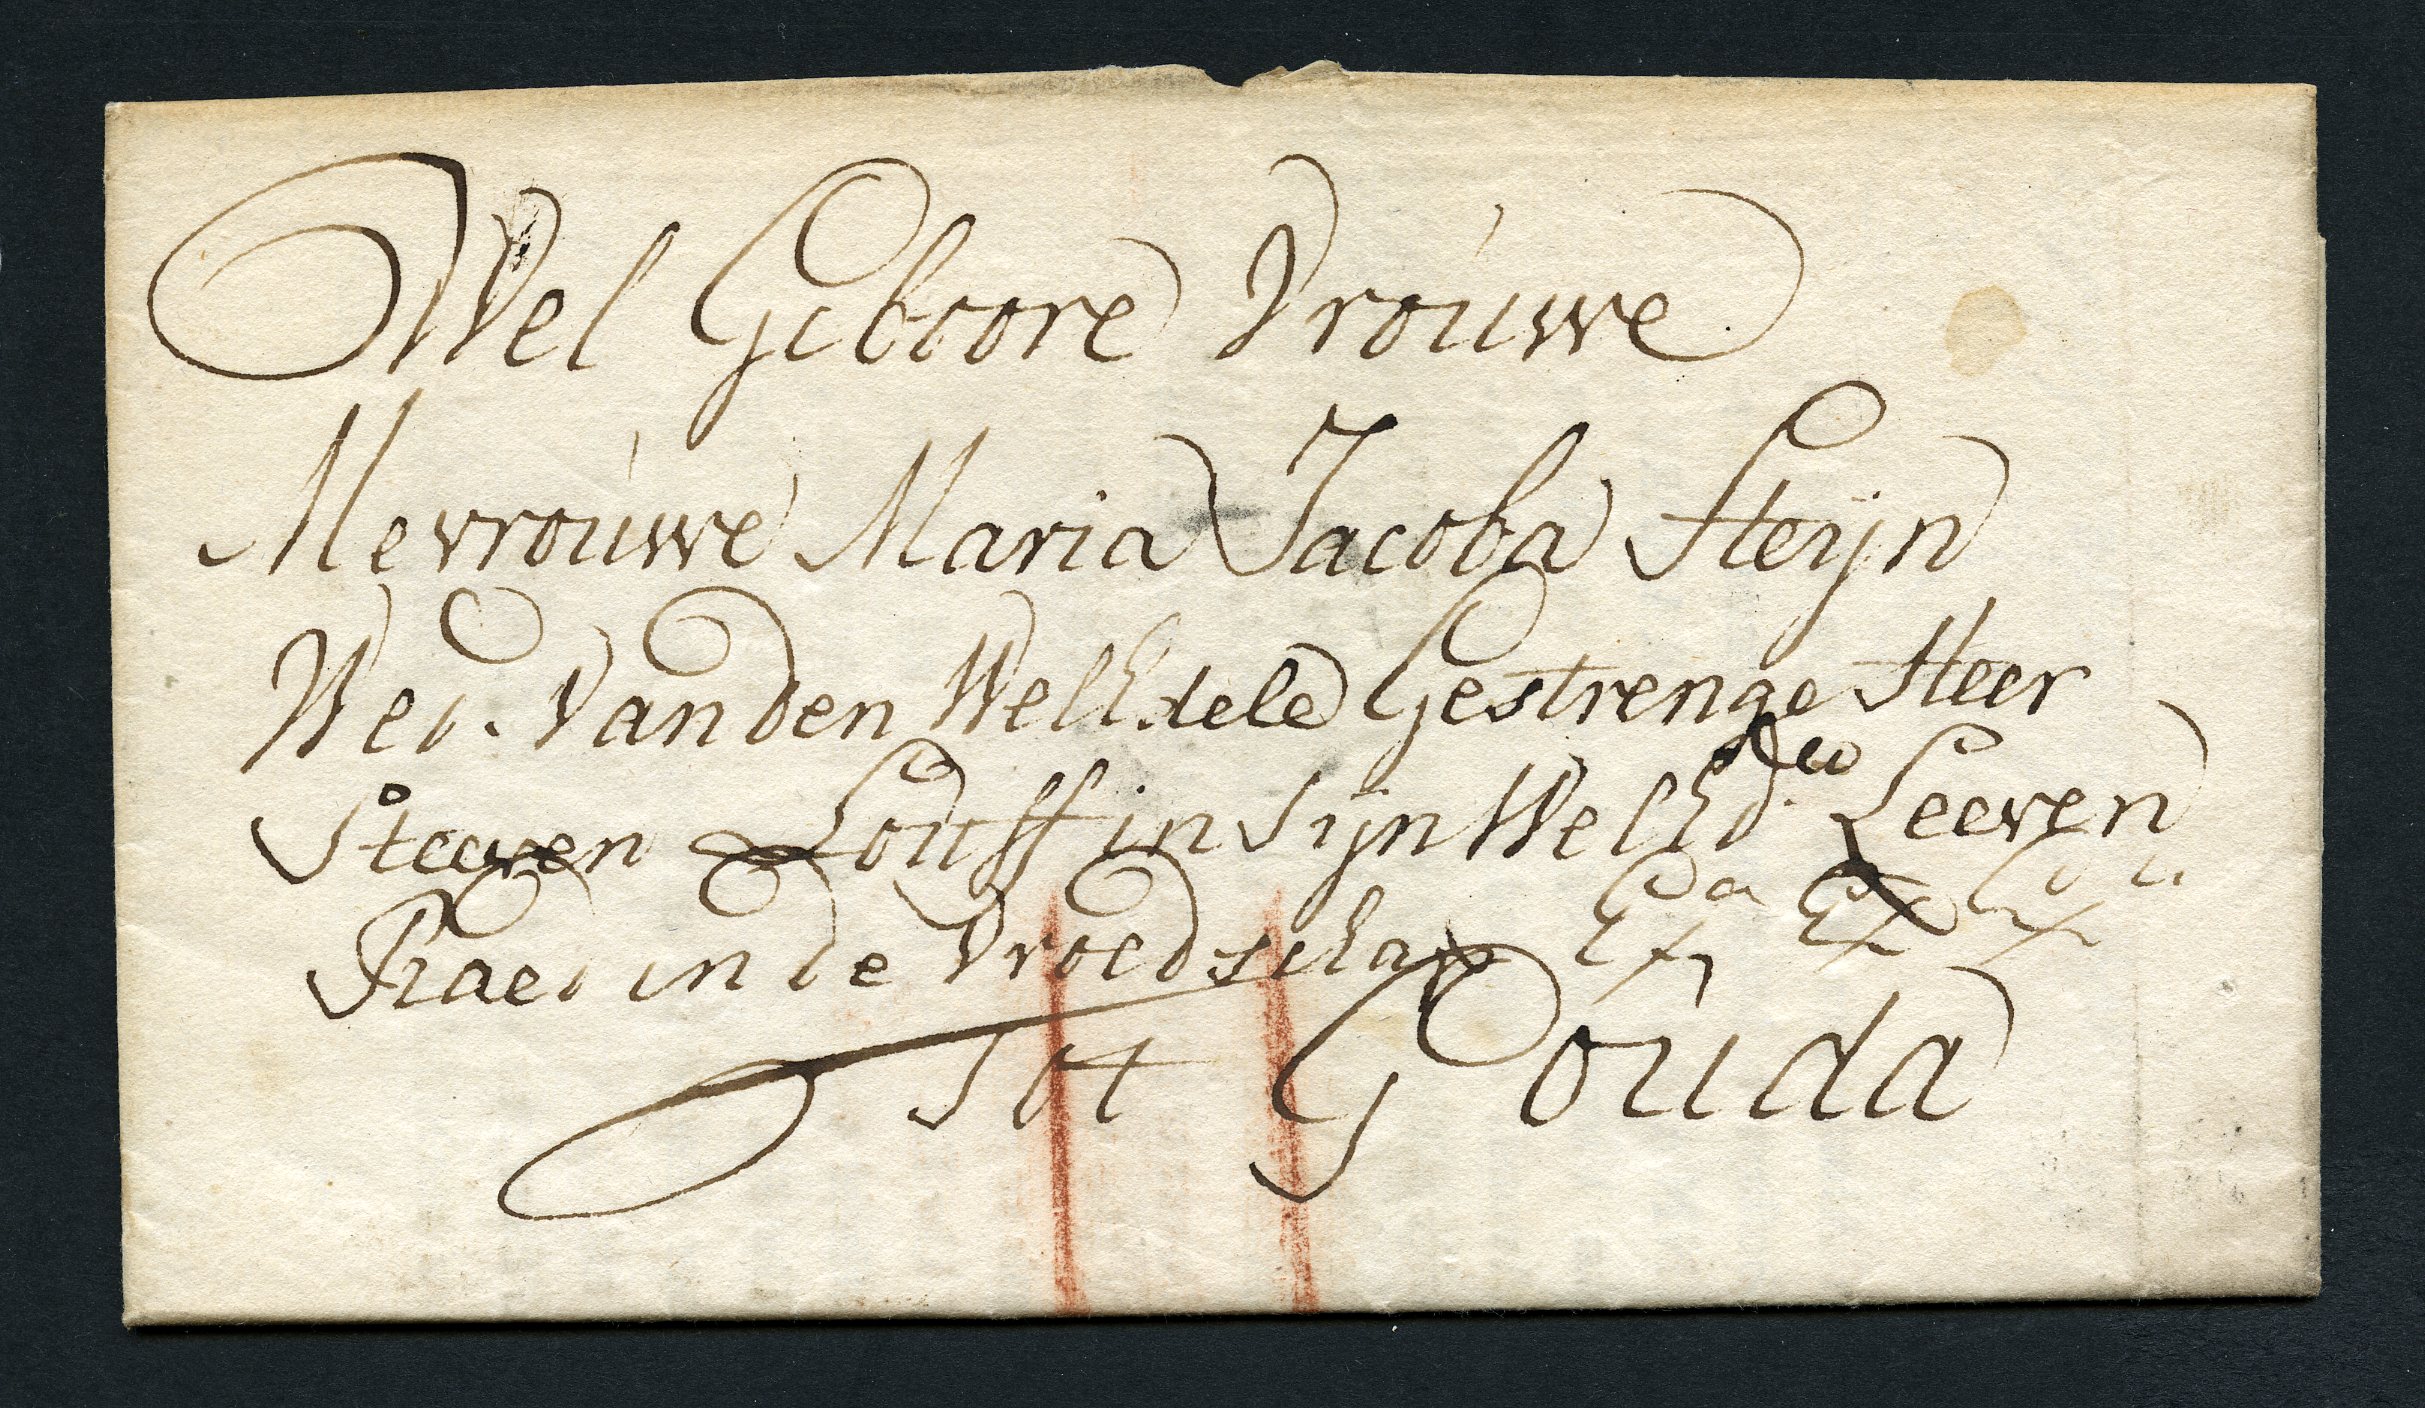 Wel Geboore Vrouwe
Mevrouwe Maria Jacoba Steijn
Wed. Van den Wel Edele Gestrenge Heer
Steeven Louff in Sijn Wel Ed. Leeven
Raed in de Vroedschap Ex.a Ex Ex.
Tot Gouda